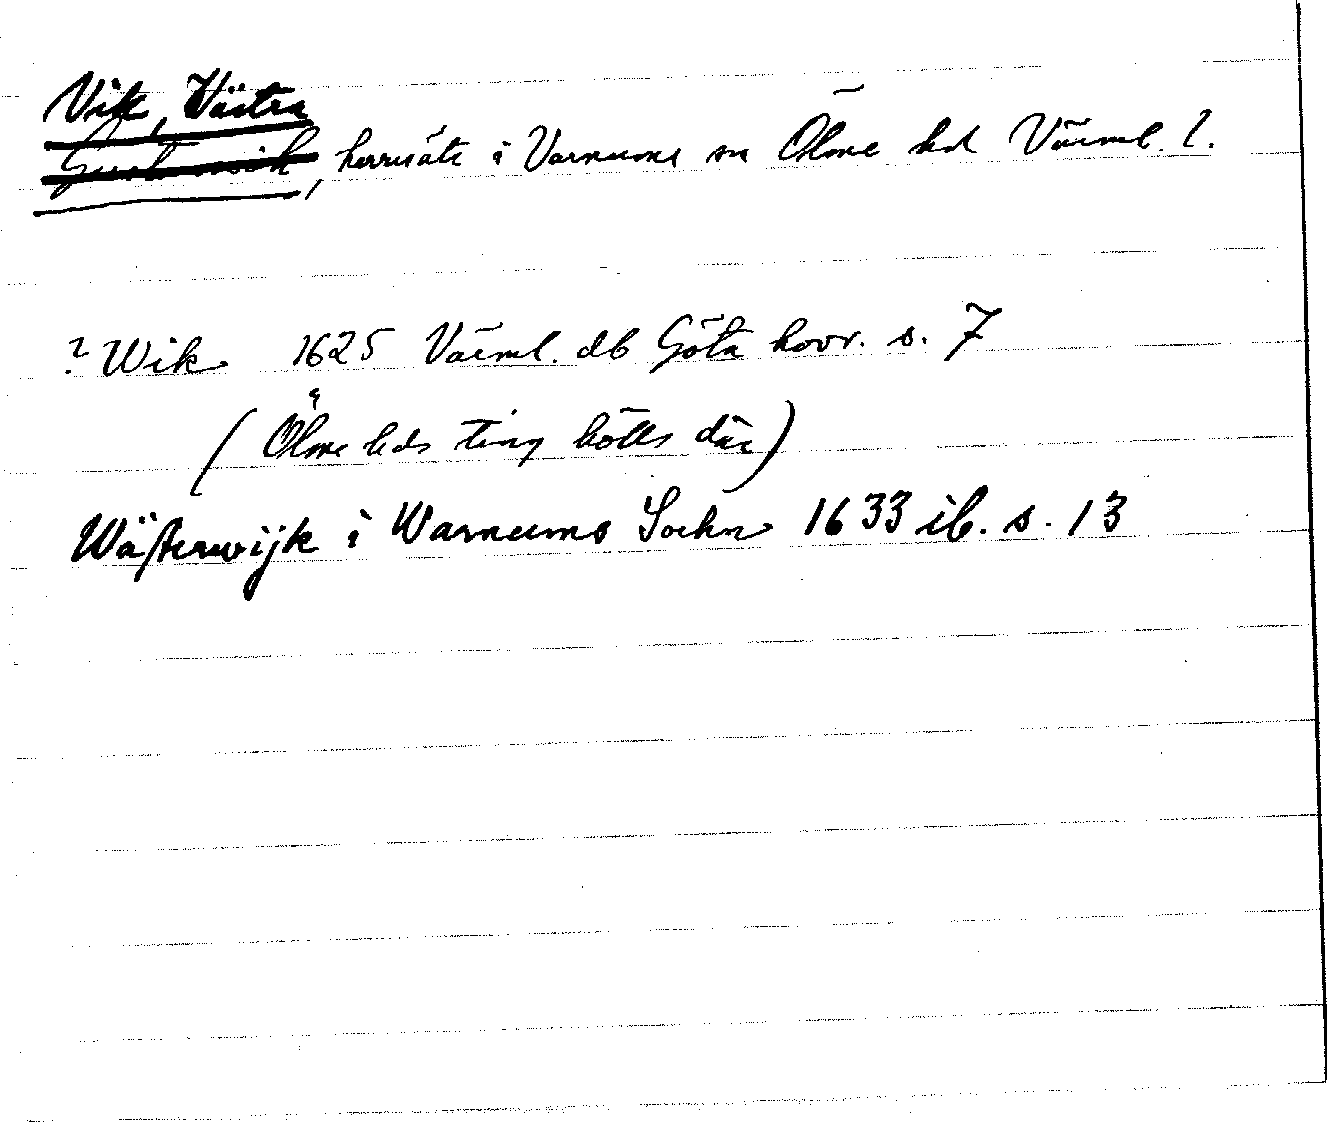 Vik, Västra
Gustavsvik, herrsäte i Varnums sn Ölme hd Värml. l.
? Wik 1625 Värml. db Göta hovr. s. 7
(Ölme hds ting hölls där)
Wästerwijk i Warnums Sochn 1633 ib. s. 13